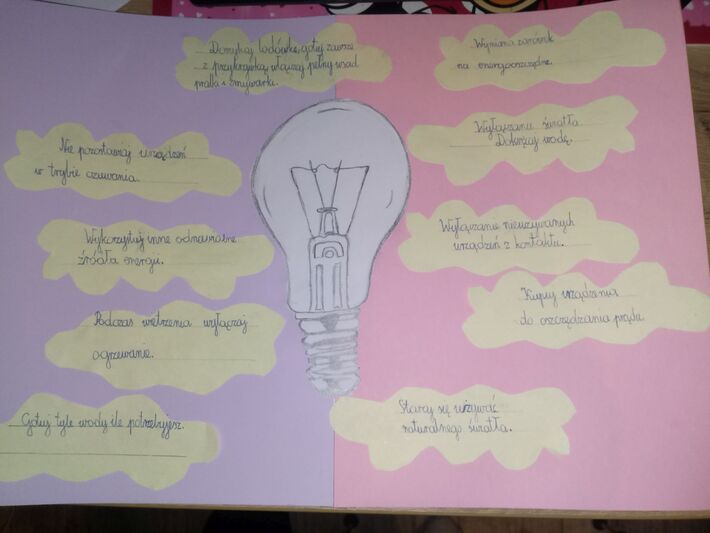 Domykaj lodówkę, gotuj zawsze
z przykrywką, włączaj pełny wsad
pralki i zmywarki.
Wymiana żarówek
na energooszczędne.
Nie pozostawiaj urządzeń
w trybie czuwania.
Wyłączanie światła
Dokręcaj wodę.
Wykorzystuj inne odnawialne
źródła energii.
Wyłączanie nieużywanych
urządzeń z kontaktu.
Podczas wietrzenia wyłączaj
ogrzewanie.
Kupuj urządzenia
do oszczędzania prądu.
Gotuj tyle wody ile potrzebujesz.
Staraj się używać
naturalnego światła.